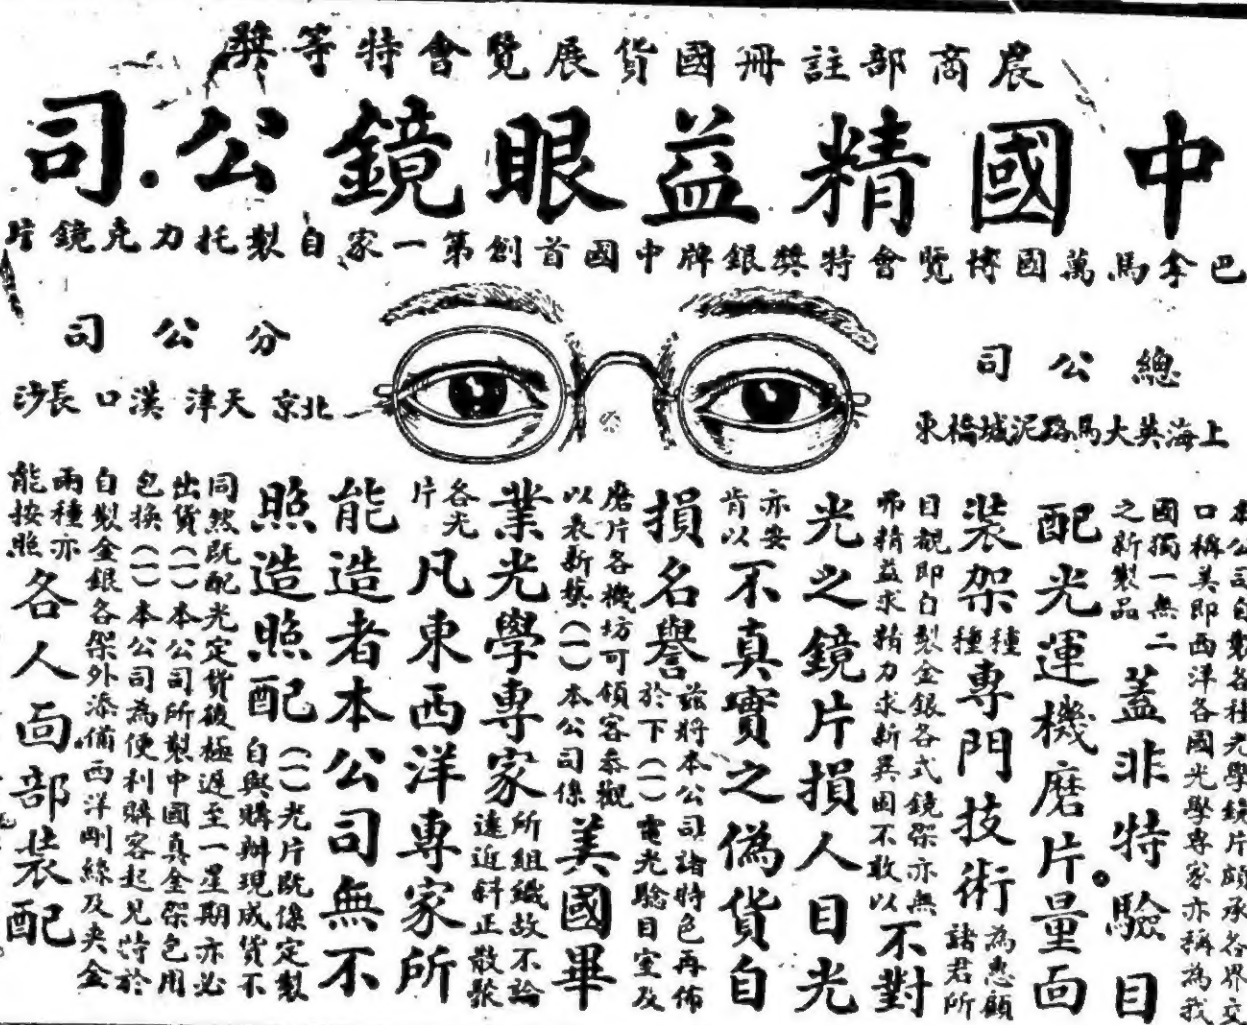 農商部註冊國貨展覽會特等獎
中國精益眼鏡公司
巴拿馬萬國博覽會特獎銀牌中國首創第一家自製托力克鏡片
總公司
上海英大馬路泥城橋東
分公司
北京 天津 漢口 長沙
本公司自製各種光學鏡片頗承各界交
口稱美即西洋各國光學專家亦稱為我
國獨一無二
之新製品
蓋非特驗目
配光運機磨片量面
裝架種種專門技術為惠顧諸君所
目覩即自製金銀各式鏡架亦無
弗精益求精力求新異因不敢以
不對
光之鏡片損人目光
亦安肯以不真實之偽貨自
損名譽茲將本公司諸特色再佈於下(一)電光驗目室及
磨片各機坊可領客參觀
以表新藝(一)本公司係
美國畢
業光學專家所組織故不論遠近斜正散聚
各光片凡東西洋專家所
能造者本公司無不
照造照配(一)光片既係定製自與購辦現成貨不
同然既配光定貨後極遲至一星期亦必
出貨(一)本公司所製中國真金架包用
包換(一)本公司為便利購客起見特於
自製金銀各架外添備西洋剛絲及夾金
兩種亦
能按照
各人面部裝配